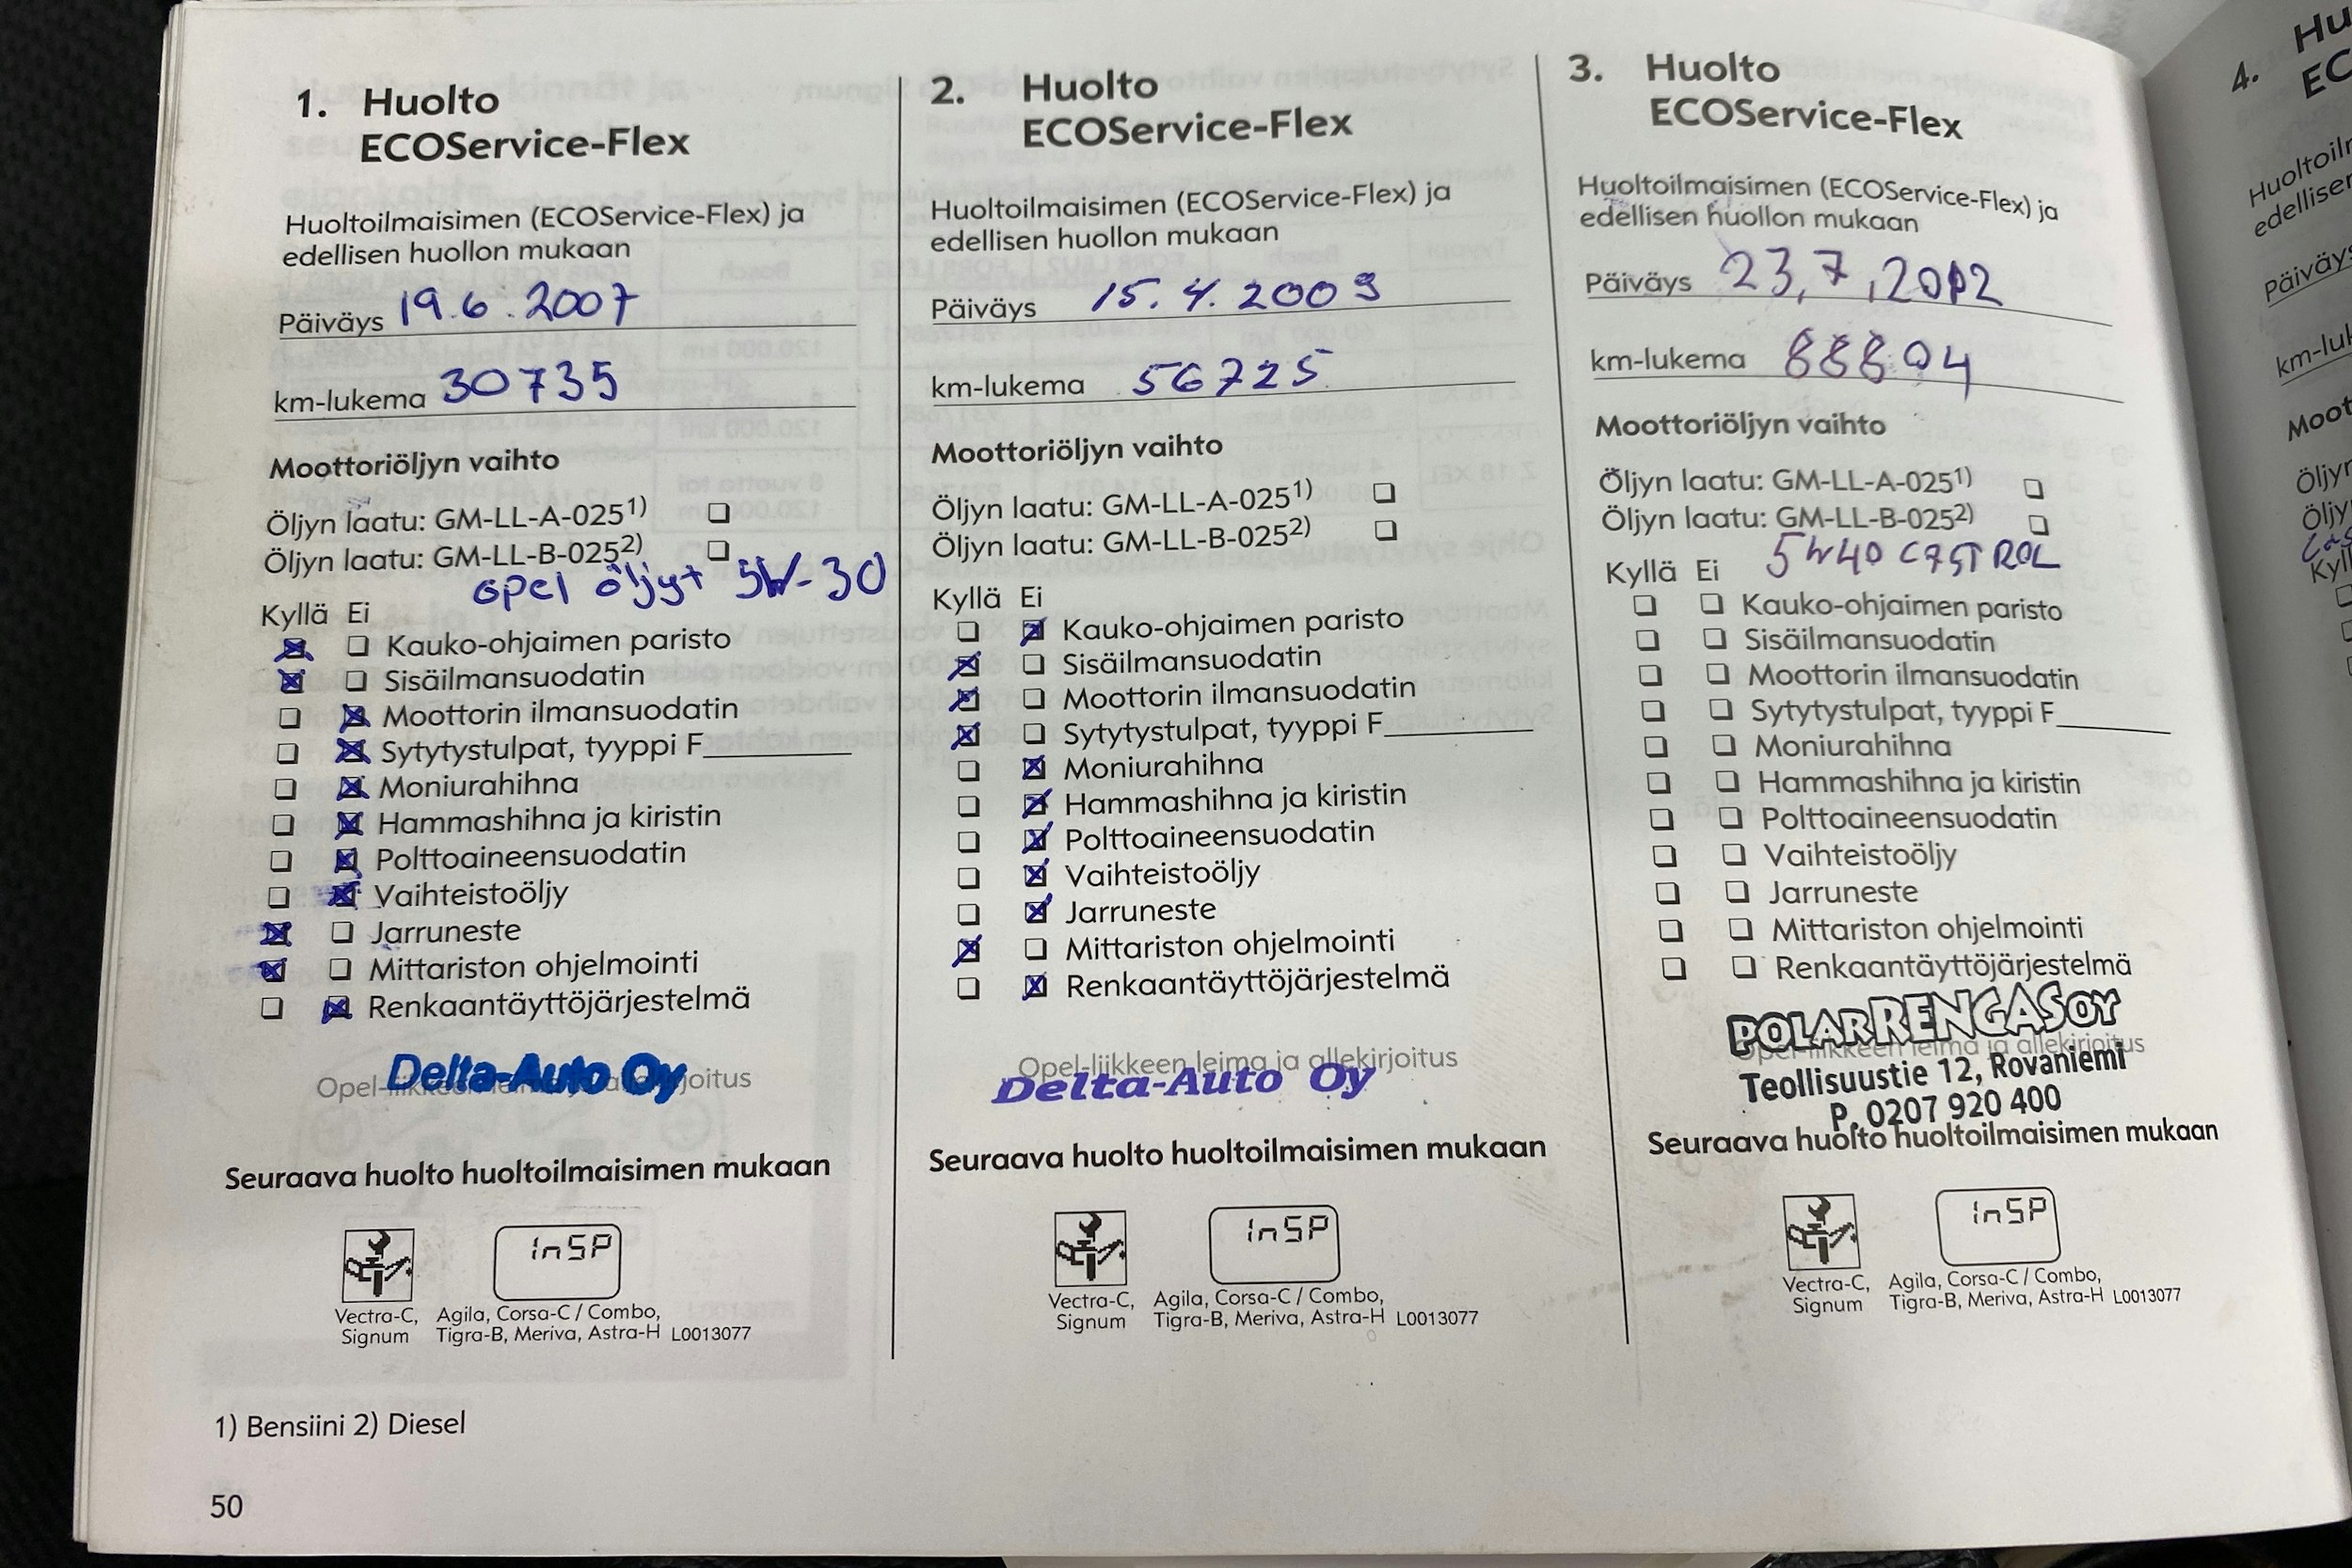 1. Huolto
ECOService-Flex
Huoltoilmaisimen (ECOService-Flex) ja
edellisen huollon mukaan
Päiväys 19.6.2007
km-lukema 30735
Moottoriöljyn vaihto
Öljyn laatu: GM-LL-A-025 1) ❏
Öljyn laatu: GM-LL-B-025 2) ❏
opel öljyt 5W-30
Kyllä Ei
☒ ❏ Kauko-ohjaimen paristo
☒ ❏ Sisäilmansuodatin
❏ ☒ Moottorin ilmansuodatin
❏ ☒ Sytytystulpat, tyyppi F
❏ ☒ Moniurahihna
❏ ☒ Hammashihna ja kiristin
❏ ☒ Polttoaineensuodatin
❏ ☒ Vaihteistoöljy
☒ ❏ Jarruneste
☒ ❏ Mittariston ohjelmointi
❏ ☒ Renkaantäyttöjärjestelmä
Delta-Auto Oy
Seuraava huolto huoltoilmaisimen mukaan
InSP
Vectra-C,
Signum
Agila, Corsa-C / Combo,
Tigra-B, Meriva, Astra-H L0013077
1) Bensiini 2) Diesel
50
2. Huolto
ECOService-Flex
Huoltoilmaisimen (ECOService-Flex) ja
edellisen huollon mukaan
Päiväys 15.4.2009
km-lukema 56725
Moottoriöljyn vaihto
Öljyn laatu: GM-LL-A-025 1) ❏
Öljyn laatu: GM-LL-B-025 2) ❏
Kyllä Ei
❏ ☒ Kauko-ohjaimen paristo
☒ ❏ Sisäilmansuodatin
☒ ❏ Moottorin ilmansuodatin
☒ ❏ Sytytystulpat, tyyppi F
❏ ☒ Moniurahihna
❏ ☒ Hammashihna ja kiristin
❏ ☒ Polttoaineensuodatin
❏ ☒ Vaihteistoöljy
❏ ☒ Jarruneste
☒ ❏ Mittariston ohjelmointi
❏ ☒ Renkaantäyttöjärjestelmä
Opel-liikkeen leima ja allekirjoitus
Delta-Auto Oy
Seuraava huolto huoltoilmaisimen mukaan
InSP
Vectra-C,
Signum
Agila, Corsa-C / Combo,
Tigra-B, Meriva, Astra-H L0013077
3. Huolto
ECOService-Flex
Huoltoilmaisimen (ECOService-Flex) ja
edellisen huollon mukaan
Päiväys 23.7.2012
km-lukema 88804
Moottoriöljyn vaihto
Öljyn laatu: GM-LL-A-025 1) ❏
Öljyn laatu: GM-LL-B-025 2) ❏
5W40 CASTROL
Kyllä Ei
❏ ❏ Kauko-ohjaimen paristo
❏ ❏ Sisäilmansuodatin
❏ ❏ Moottorin ilmansuodatin
❏ ❏ Sytytystulpat, tyyppi F
❏ ❏ Moniurahihna
❏ ❏ Hammashihna ja kiristin
❏ ❏ Polttoaineensuodatin
❏ ❏ Vaihteistoöljy
❏ ❏ Jarruneste
❏ ❏ Mittariston ohjelmointi
❏ ❏ Renkaantäyttöjärjestelmä
POLARRENGAS OY
Opel-liikkeen leima ja allekirjoitus
Teollisuustie 12, Rovaniemi
P. 0207 920 400
Seuraava huolto huoltoilmaisimen mukaan
InSP
Vectra-C,
Signum
Agila, Corsa-C / Combo,
Tigra-B, Meriva, Astra-H L0013077
4.